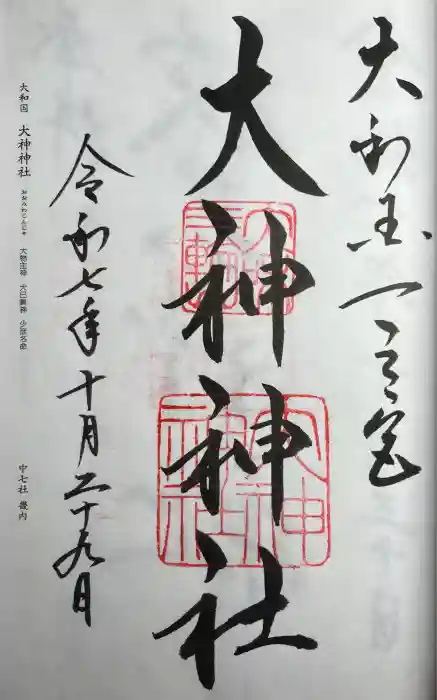 大和国一之宮
大神神社
三輪
大神神社
令和七年十月二十九日
大和国 大神神社 おおみわじんじゃ 大物主神 大己貴神 少彦名命
中七社 畿内